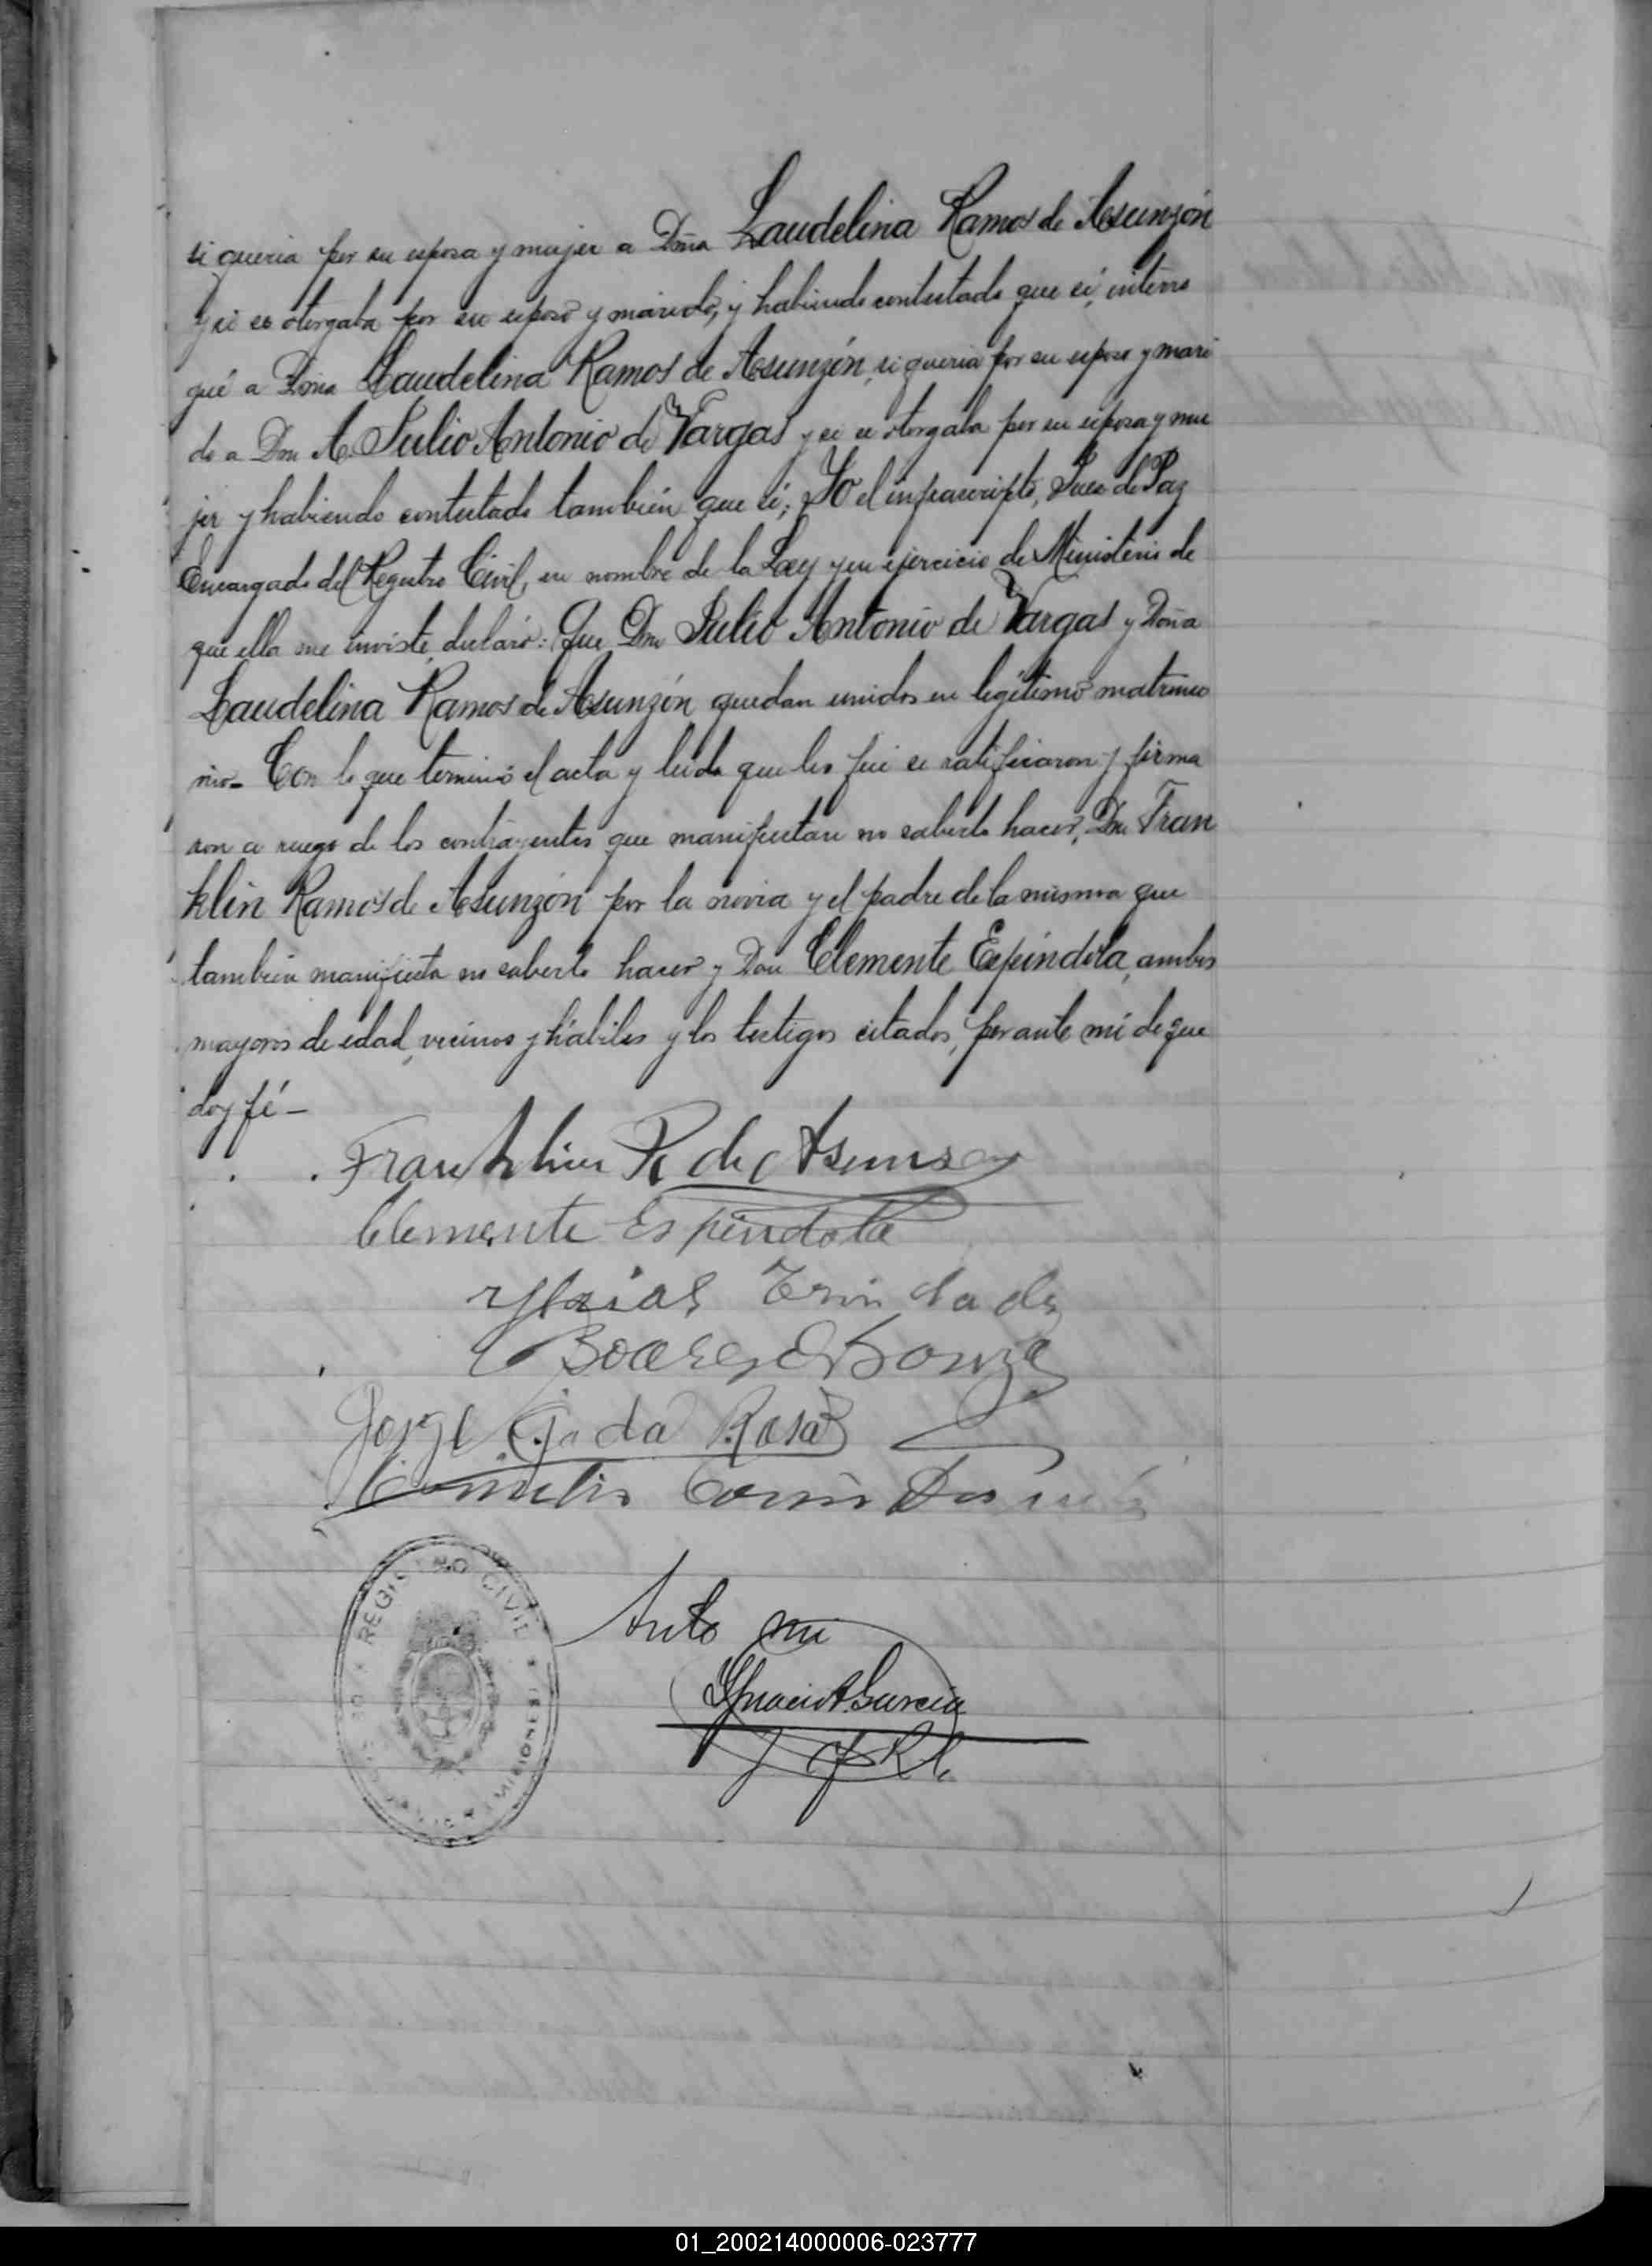 si queria por su esposa y mujer a Doña Laudelina Ramos de Asunzón
y si se otorgaba por su esposo y marido, y habiendo contestado que si, interro
gué a Doña Laudelina Ramos de Asunzón, si queria por su esposo y mari
do a Don A. Julio Antonio de Vargas y si se otorgaba por su esposa y mu
jer y habiendo contestado también que si; Yo el infrascripto, Juez de Paz
Encargado del Registro Civil, en nombre de la Ley y en ejercicio de Ministerio de
que ella me inviste, declaro: Que Don Julio Antonio de Vargas y Doña
Laudelina Ramos de Asunzón quedan unidos en legítimo matrimo
nio- Con lo que terminó el acta y leida que les fué se ratificaron y firma
ron a ruego de los contrayentes que manifiestan no saberlo hacer, Don Fran
klin Ramos de Asunzón por la novia y el padre de la misma que
también manifiesta no saberlo hacer y Don Clemente Espíndola, ambos
mayores de edad, vecinos y hábiles y los testigos citados, por ante mí de que
doy fé-
Franklin R de Asunson
Clemente Espindola
Trindade
Jorge G. da Rosa
REGISTRO CIVIL
MISIONES
Ante mi
Ignacio A. Garcia